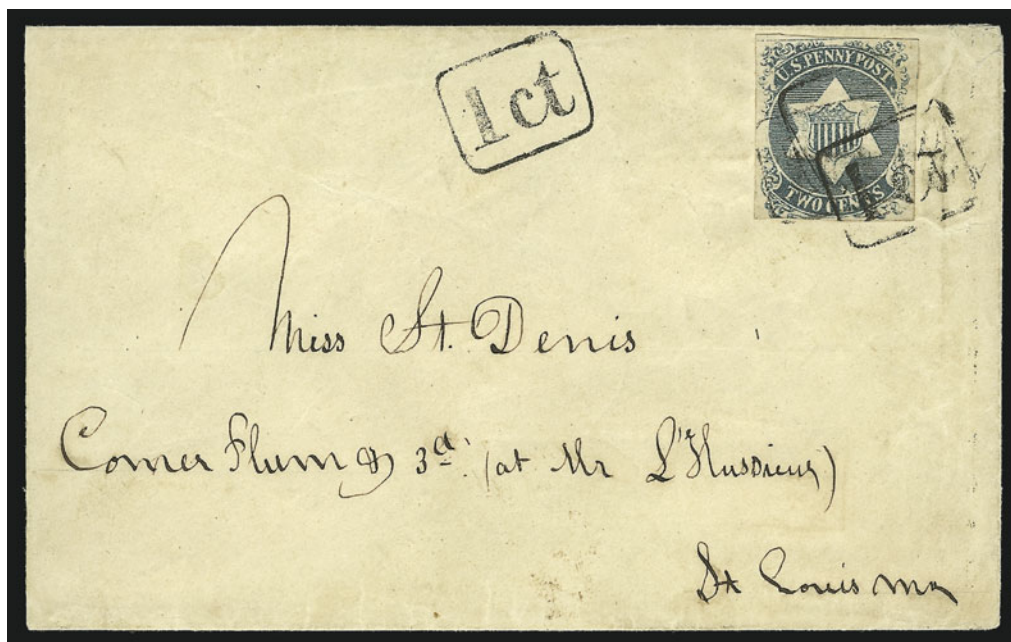 1 ct
U.S. PENNY POST
TWO CENTS
1 ct
Miss St. Denis
Corner Plum & 3d (at Mr L'Hussieur)
St Louis Mo